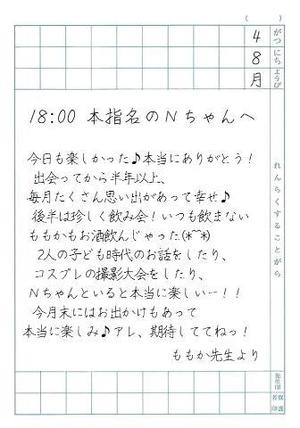 ( )
4 がつ
8 にち
月 ようび
れんらくすることがら
18:00 本指名のNちゃんへ
今日も楽しかった♪本当にありがとう!
出会ってから半年以上、
毎月たくさん思い出があって幸せ♪
後半は珍しく飲み会!いつも飲まない
ももかもお酒飲んじゃった(*^^*)
2人の子ども時代のお話をしたり、
コスプレの撮影大会をしたり、
Nちゃんといると本当に楽しいー!!
今月末にはお出かけもあって
本当に楽しみ♪アレ、期待しててねっ!
ももか先生より